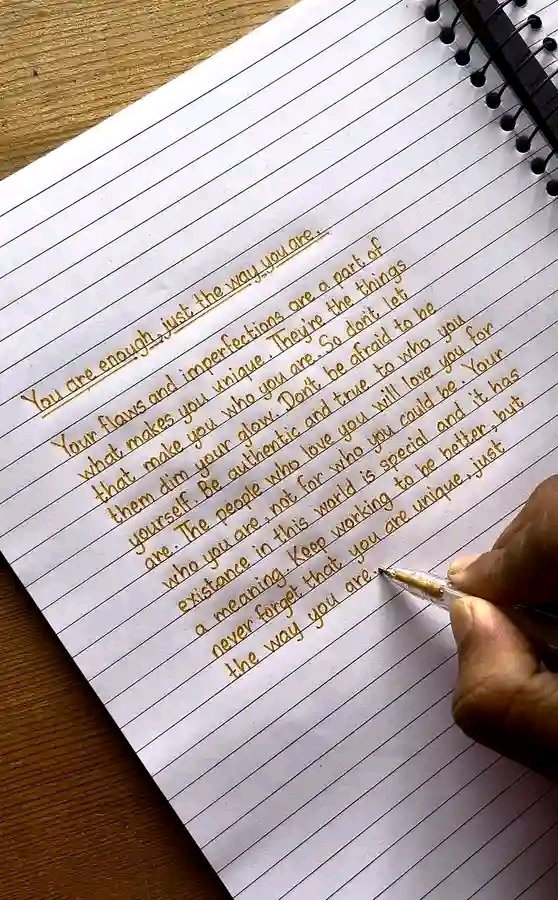 You are enough, just the way you are.
Your flaws and imperfections are a part of
what makes you unique. They're the things
that make you who you are. So don't let
them dim your glow. Don't be afraid to be
yourself. Be authentic and true to who you
are. The people who love you will love you for
who you are, not for who you could be. Your
existance in this world is special and it has
a meaning. Keep working to be better, but
never forget that you are unique, just
the way you are.